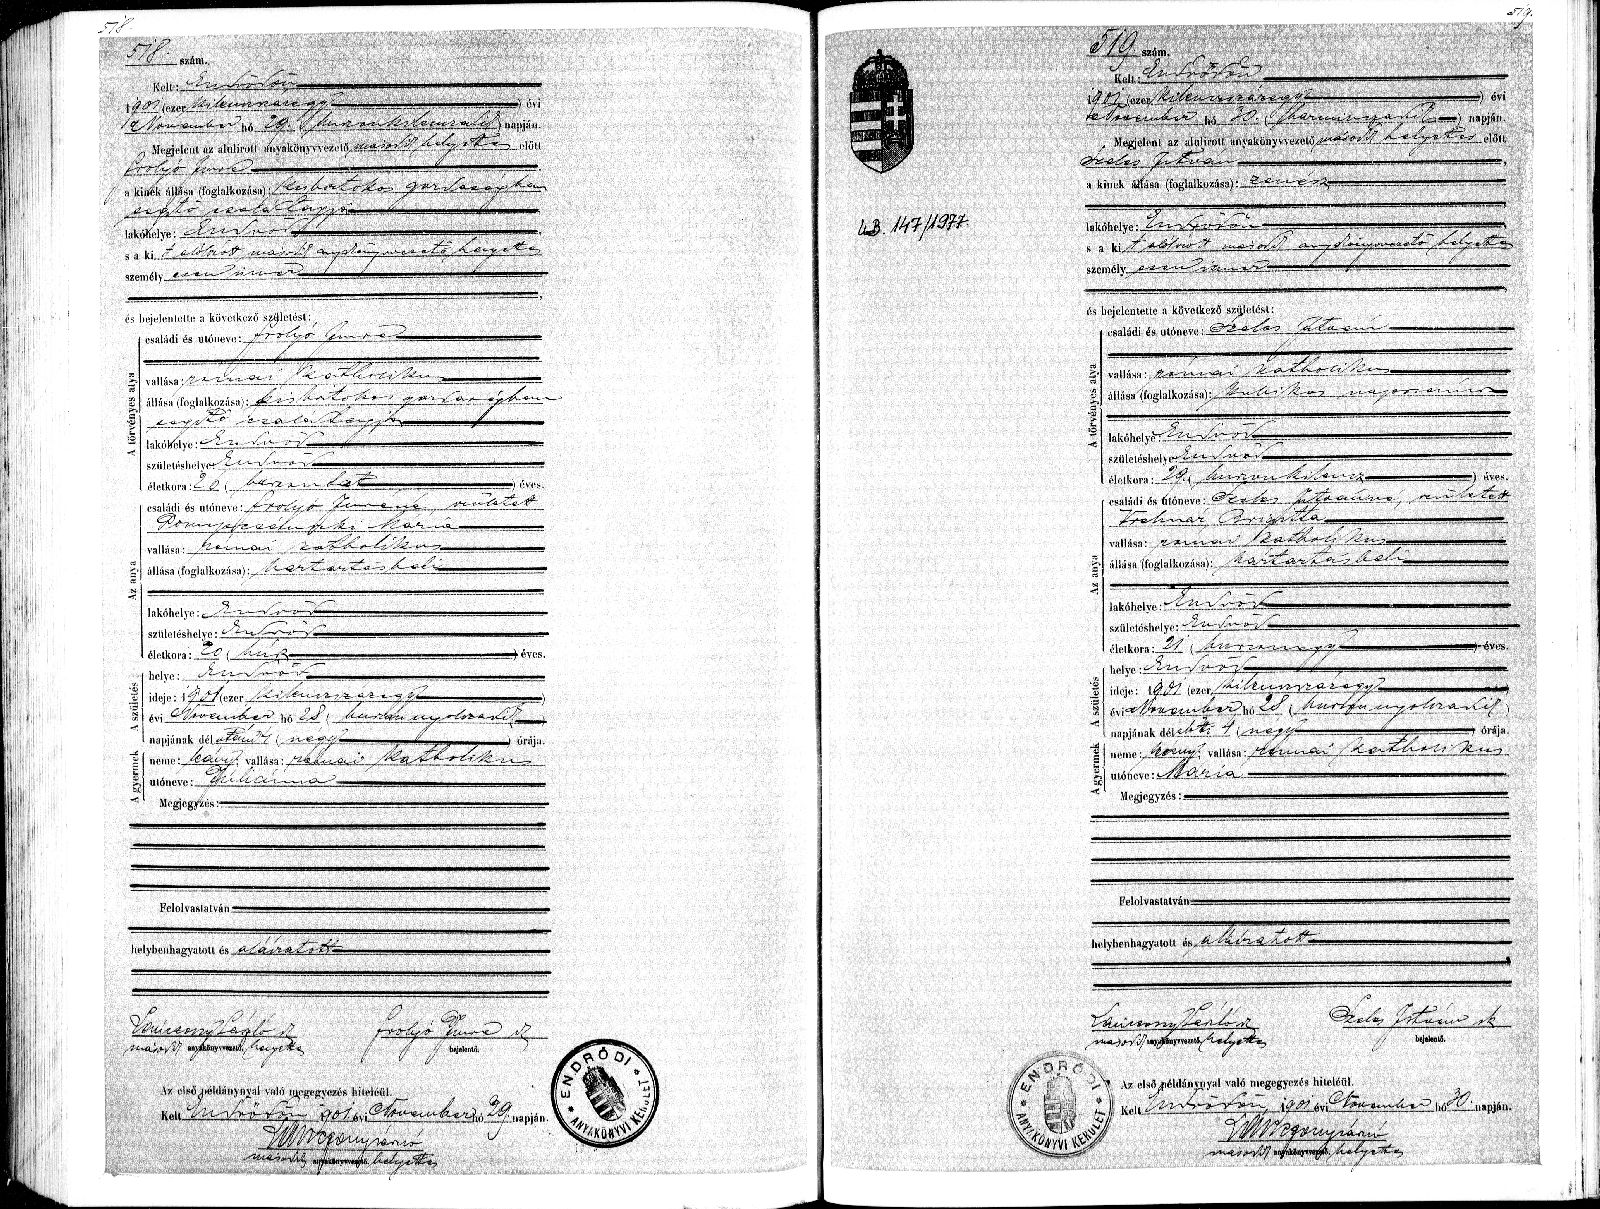 518.
518. szám.
Kelt: Endrődön
1901 (ezer kilenczszázegy) évi
November hó 29. (huszonkilenczedik) napján.
Megjelent az alulirott anyakönyvvezető másod helyettes előtt
Imre
a kinek állása (foglalkozása): kisbirtokos gazdaságban
segítő családtagja
lakóhelye: Endrőd
s a ki alólirott másod anyakönyvvezető helyettes
személyesen ismer
,
és bejelentette a következő születést:
A törvényes atya
családi és utóneve: Imre
vallása: római katholikus
állása (foglalkozása): kisbirtokos gazdaságban
segítő családtagja
lakóhelye: Endrőd
születéshelye: Endrőd
életkora: 20 ( ) éves.
Az anya
családi és utóneve: Imréné, született
Mária
vallása: római katholikus
állása (foglalkozása): háztartásbeli
lakóhelye: Endrőd
születéshelye: Endrőd
életkora: 20 (húsz) éves.
A születés
helye: Endrőd
ideje: 1901 (ezer kilenczszázegy)
évi November hó 28 (huszonnyolczadik)
napjának délután 4 (négy) órája.
A gyermek
neme: leány, vallása: római katholikus
utóneve: Juliánna
Megjegyzés:
Felolvastatván
helybenhagyatott és aláiratott
másod anyakönyvvezető helyettes
Imre
bejelentő.
Az első példánynyal való megegyezés hiteléül.
Kelt Endrődön, 1901 évi November hó 29. napján.
másod anyakönyvvezető helyettes
ENDRŐDI ANYAKÖNYVI KERÜLET
519.
519 szám.
Kelt: Endrődön
1901 (ezer kilenczszázegy) évi
November hó 30. (harminczadik) napján.
Megjelent az alulirott anyakönyvvezető másod helyettes előtt
Szeles István,
a kinek állása (foglalkozása):
lakóhelye: Endrődön,
s a ki alólirott másod anyakönyvvezető helyettes
személyesen ismer
és bejelentette a következő születést:
A törvényes atya
családi és utóneve: Szeles István
vallása: római katholikus
állása (foglalkozása): kubikos napszámos
lakóhelye: Endrőd
születéshelye: Endrőd
életkora: 29. (huszonkilencz) éves.
Az anya
családi és utóneve: Szeles Istvánné, született
Brigitta
vallása: római katholikus
állása (foglalkozása): háztartásbeli
lakóhelye: Endrőd
születéshelye: Endrőd
életkora: 21 (huszonegy) éves.
A születés
helye: Endrőd
ideje: 1901 (ezer kilenczszázegy)
évi November hó 28 (huszonnyolczadik)
napjának délelőtti 4 (négy) órája.
A gyermek
neme: leány, vallása: római katholikus
utóneve: Mária
Megjegyzés:
Felolvastatván
helybenhagyatott és aláiratott
másod anyakönyvvezető, helyettes
Szeles István sk
bejelentő.
Az első példánynyal való megegyezés hiteléül.
Kelt Endrődön, 1901 évi November hó 30. napján.
másod anyakönyvvezető, helyettes
ENDRŐDI ANYAKÖNYVI KERÜLET
147/1977